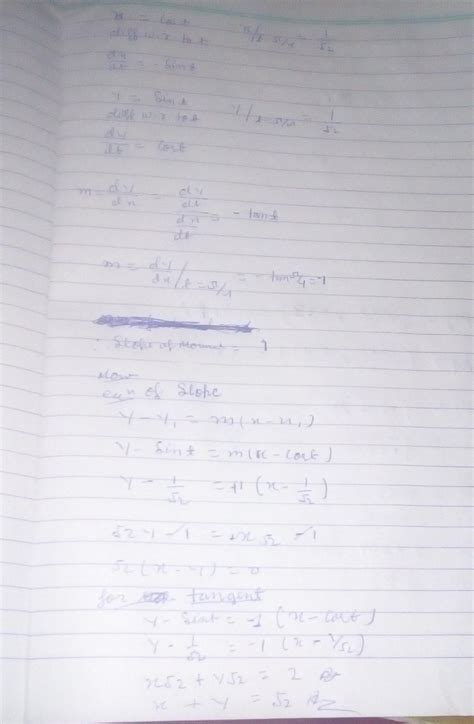 x = cost
diff w.r. to t   x/t=π/4 = 1/√2
dx/dt = - sint
y = sint
diff w.r. to t   y/t=π/4 = 1/√2
dy/dt = cost
m = dy/dx = dy/dt / dx/dt = - tant
m = dy/dx / t=π/4 = - tan π/4 = -1
∴ Slope of = 1
Now
eqn of slope
y - y₁ = m(x - x₁)
y - sint = m(x - cost)
y - 1/√2 = +1 (x - 1/√2)
√2 y - 1 = x√2 - 1
√2 (x - y) = 0
for tangent
y - sint = -1 (x - cost)
y - 1/√2 = -1 (x - 1/√2)
x√2 + y√2 = 2
x + y = √2